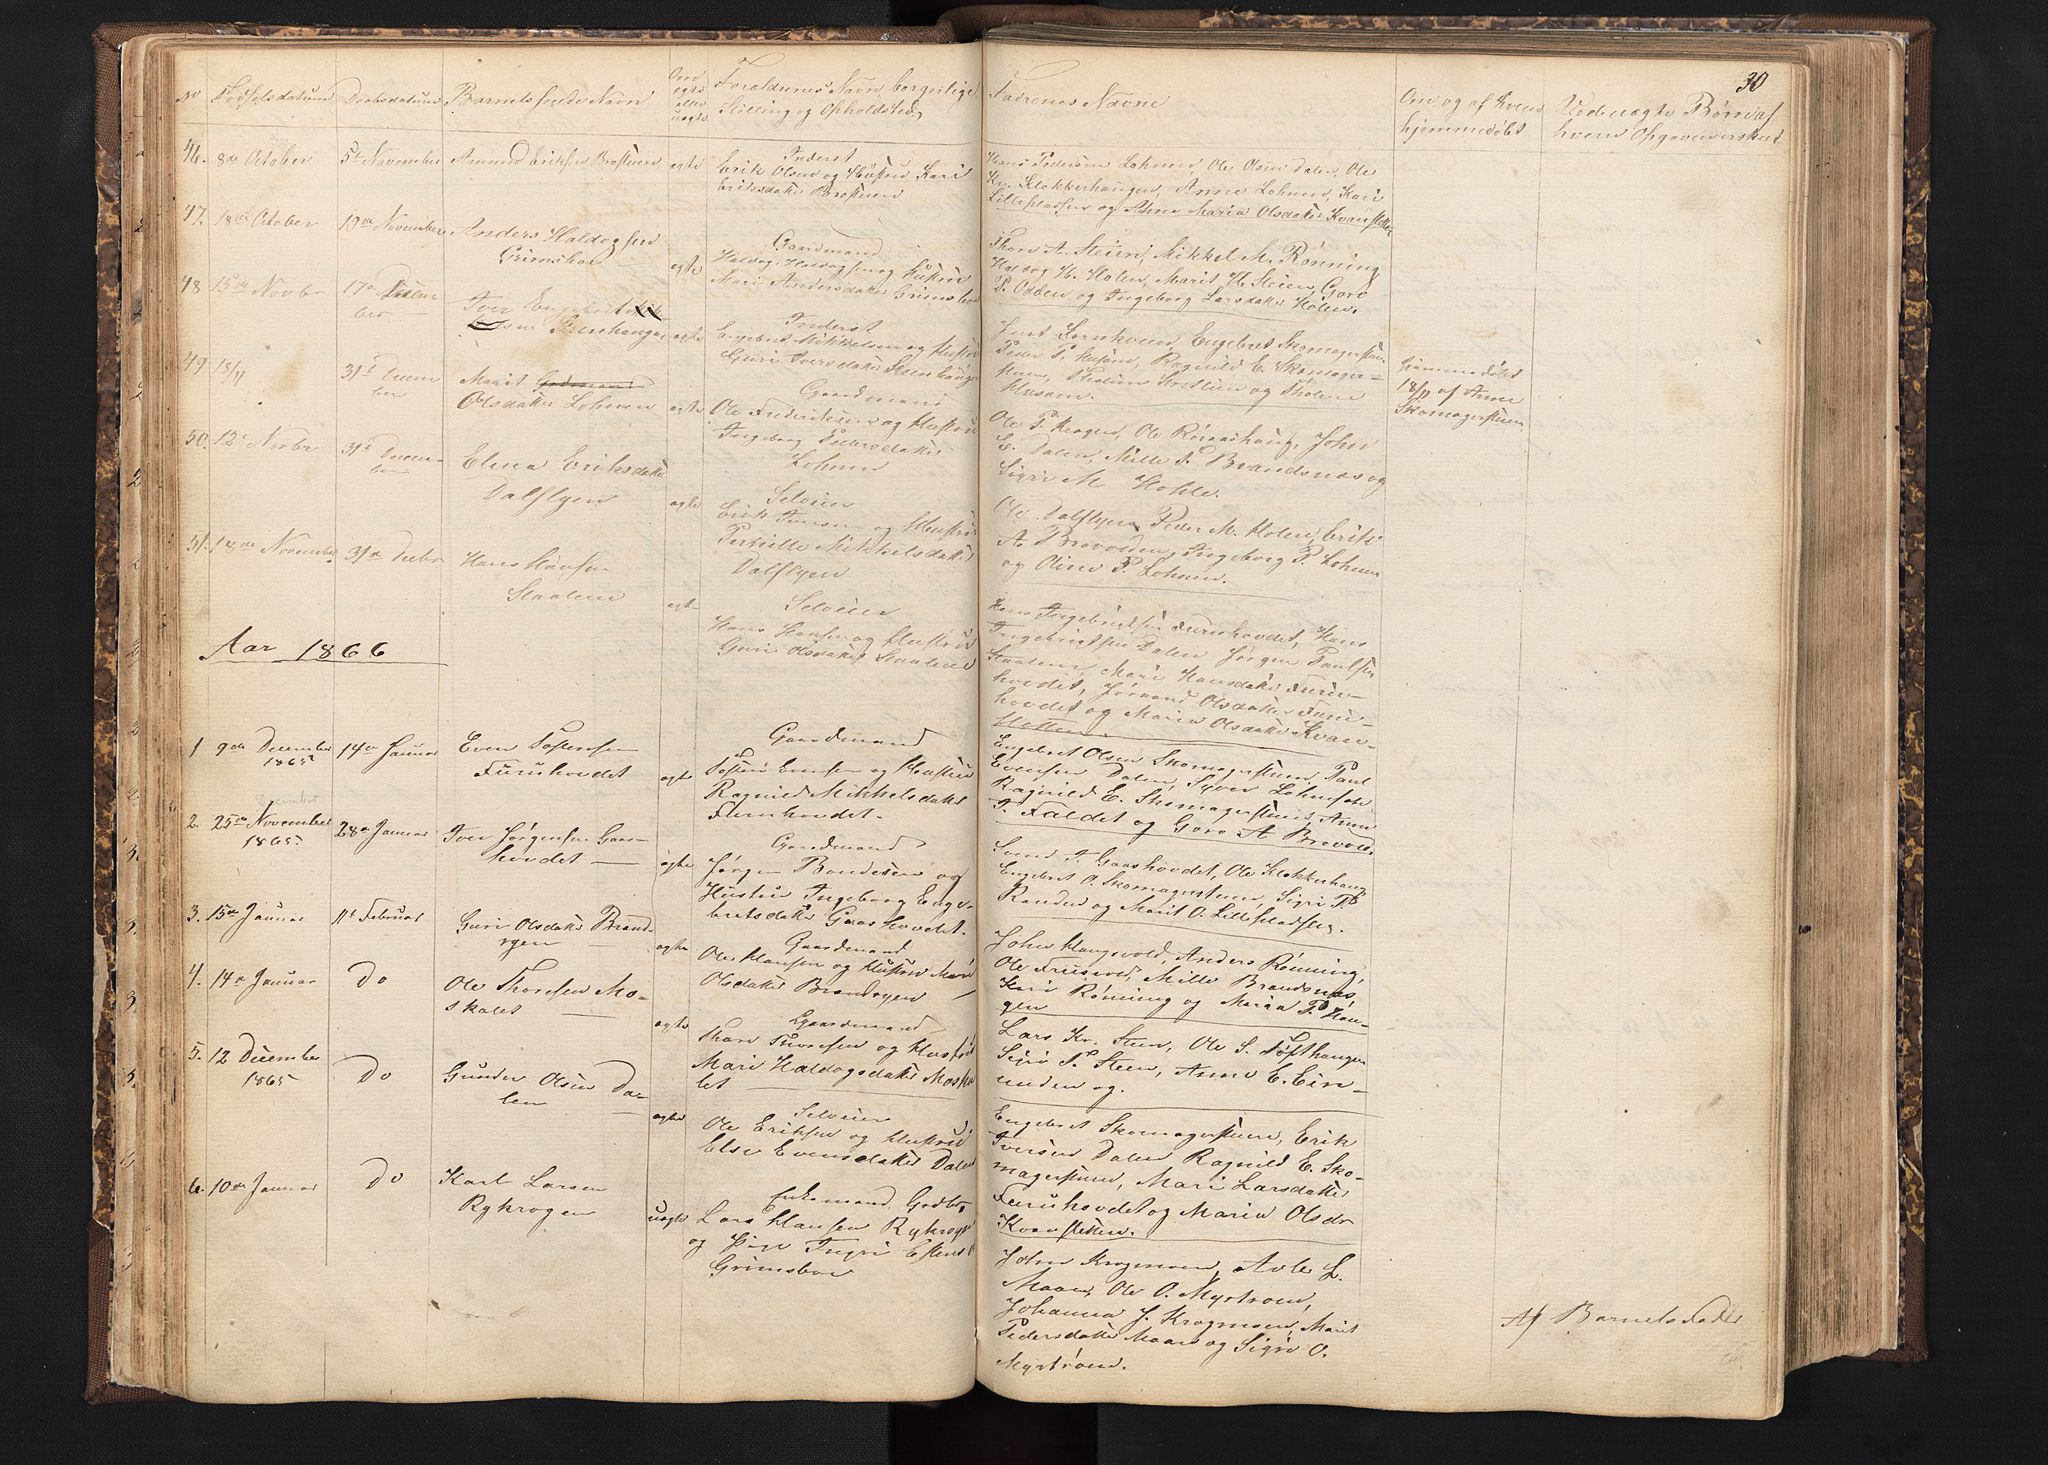 30
No Fødselsdatum Daabsdatum Barnets fulde Navn Om ægte eller uægte Forældrenes Navn, borgerlige
Stilling og Opholdsted
Faddernes Navne
Om og af hvem
hjemmedøbt
Ved uægte Børn af
hvem Opgaven er skeet
46. 8de October 5te November Amund Eriksen Brostuen ægte Inderst
Erik Olsen og Hustru Kari
Eriksdatter Brostuen
Hans Pedersen Lohnen, Ole Olsen Dalen, Ole
Kr. Klokkerhaugen, Anne Lohnen, Kari
Lillepladsen og Anne Maria Olsdatter Kvansletten
47. 18de October 19de November Anders Haldogsen
Grimsboe ægte Gaardmand
Haldog Haldogsen og Hustru
Mari Andersdatter Grimsboe
Thore A. Steien, Mikkel M. Rønning
Haldog H. Holen, Marit H. Steien, Goro
P. Odden og Ingeborg Larsdatter Holen.
48 15de Novbr 17de Decem
ber Iver Engebret
Steenhaugen ægte Inderst
Engebret Mikkelsen og Hustru
Guri Iversdatter Steenhaugen
Engebret Skomagerstuen
Peder P. Husom, Ragnild E. Skomager-
stuen,
49 18/11 31te Decem
ber Marit
Olsdatter Lohnen ægte Gaardmand
Ole Frederiksen og Hustru
Ingeborg Pedersdatter
Lohnen
Hjemmedøbt
18/11 af Anne
Skomagerstuen
Ole
John
E. Dalen, Mille P. Brandsnes og
Sigri M. Hohle.
50. 12te Novbr 31te Decem-
ber Elena Eriksdatter
Dalflyen ægte Selveier
Erik Iversen og Hustru
Pernille Mikkelsdatter
Dalflyen
Ole Dalflyen, Peder M. Holen, Erik
A. Brovolden, Ingeborg P. Lohnen
og Oline P. Lohnen.
51. 18de November 31te Decbr Hans Hansen
Staalen ægte Selveier
Hans Hansen og Hustru
Guri Olsdatter Staalen
Hans Ingebrigtsen Furuhovdet, Hans
Ingebrigtsen Dalen Jørgen Paulsen
Staalen, Mari Hansdatter Furu-
hovdet, Jørand Olsdatter Furu-
hovdet og Maria Olsdatter Kvan-
sletten.
Aar 1866
1 9de December
1865 14de Januar Even Tostensen
Furuhovdet ægte Gaardmand
Tosten Evensen og Hustru
Ragnild Mikkelsdatter
Furuhovdet.
Engebret Olsen Skomagerstuen, Paul
Evensen Dalen, Syver Lohnsæter
Ragnild E. Skomagerstuen, Anne
T. Faldet og Goro A. Brovold.
December
2. 25de November
1865 28de Januar Iver Jørgensen Gaas-
hovdet ægte Gaardmand
Jørgen Bondesen og
Hustru Ingeborg Enge-
bretsdatter Gaashovdet.
Svend T. Gaashovdet, Ole Klokkerhaug
Engebret O. Skomagerstuen, Sigri P.
Randen og Marit O. Lillepladsen.
3. 15de Januar 11te Februar Guri Olsdatter Brand-
rygen ægte Gaardmand
Ole Hansen og Hustru Mari
Olsdatter Brandrygen
John Haugsvold, Anders Rønning,
Ole Friisvold, Mille Brandsnes,
Kari Rønning og Maria P. Hau-
gen
4. 14de Januar Do Ole Thoresen Mo-
skalet ægte Gaardmand
Thore Thoresen og Hustru
Mari Haldogsdatter Moska-
let
Lars Kr. Steen, Ole S. Tøfthaugen
Sigri P. Steen, Anne E. Ein-
unden og.
5. 12 December
1865 Do Gunder Olsen Da-
len ægte Selveier
Ole Eriksen og Hustru
Else Evensdatter Dalen
Engebret Skomagerstuen, Erik
Iversen Dalen Ragnild E. Sko-
magerstuen, Mari Larsdatter
Furuhovdet og Maria Olsdr
Kvansletten.
6. 10de Januar Do Karl Larsen
Rykrogen uægte Enkemand, Gaardbr.
Lars Hansen Rykrogen
og Pige Ingri Estensd
Grimsboe
John Krogmoen, Avle L.
Moan, Ole O. Myrtroen,
Johanna J. Krogmoen, Marit
Pedersdatter Moan og Sigri O.
Myrtrøen.
Af Barnets Fader